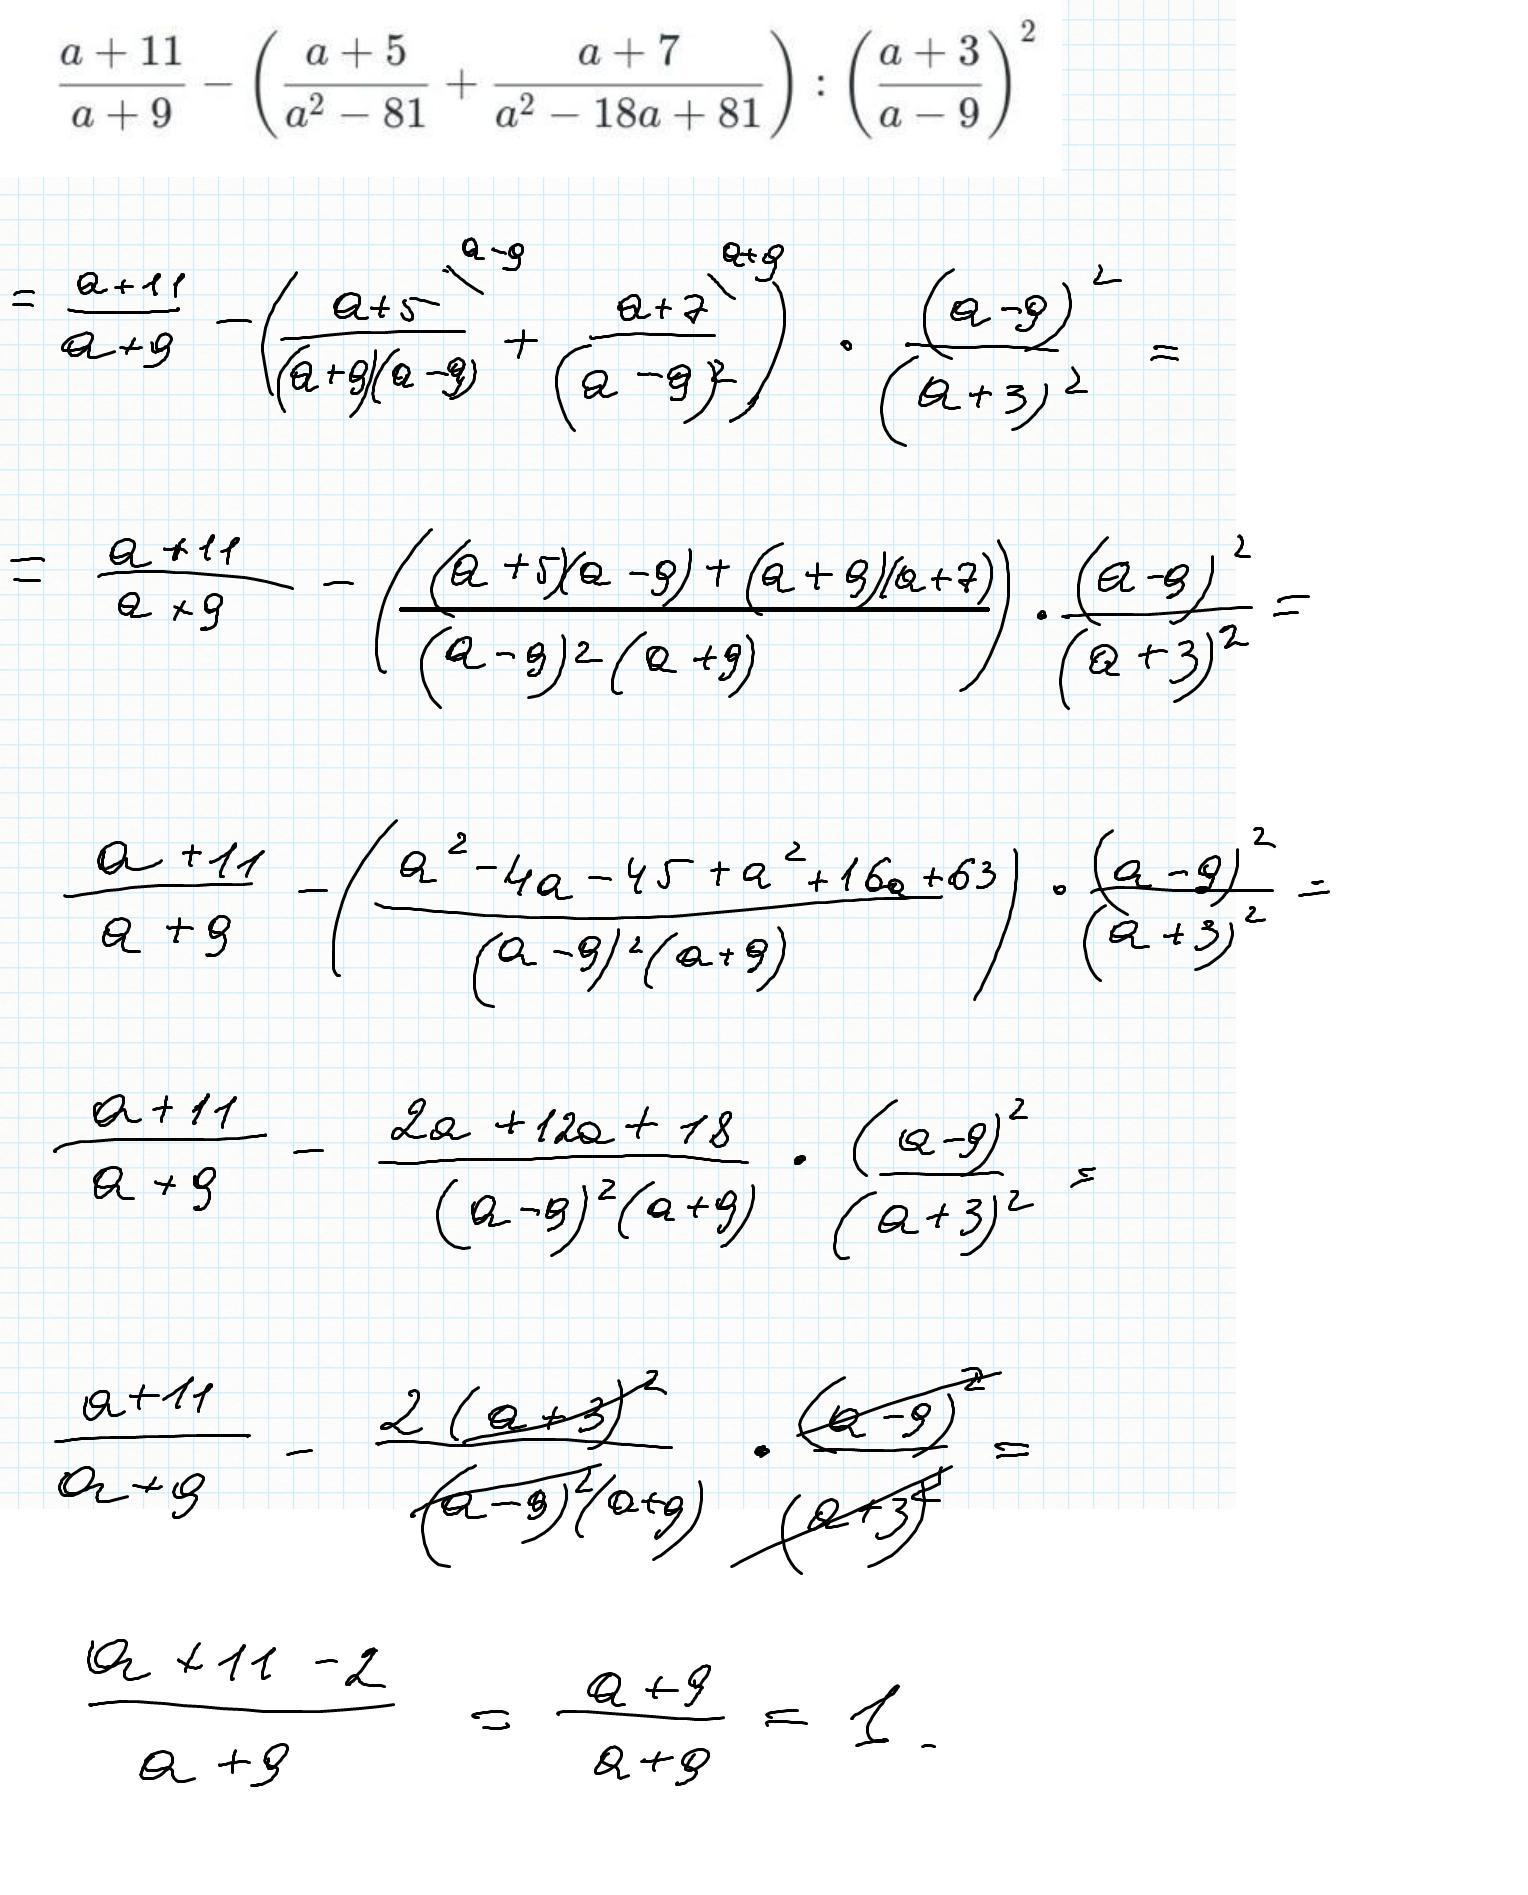 \frac{a+11}{a+9} - \left( \frac{a+5}{a^2-81} + \frac{a+7}{a^2-18a+81} \right) : \left( \frac{a+3}{a-9} \right)^2
= \frac{a+11}{a+9} - \left( \frac{a+5}{(a+9)(a-9)}^{\backslash a-9} + \frac{a+7}{(a-9)^2}^{\backslash a+9} \right) \cdot \frac{(a-9)^2}{(a+3)^2} =
= \frac{a+11}{a+9} - \left( \frac{(a+5)(a-9)+(a+9)(a+7)}{(a-9)^2(a+9)} \right) \cdot \frac{(a-9)^2}{(a+3)^2} =
\frac{a+11}{a+9} - \left( \frac{a^2-4a-45+a^2+16a+63}{(a-9)^2(a+9)} \right) \cdot \frac{(a-9)^2}{(a+3)^2} =
\frac{a+11}{a+9} - \frac{2a+12a+18}{(a-9)^2(a+9)} \cdot \frac{(a-9)^2}{(a+3)^2} =
\frac{a+11}{a+9} - \frac{2(a+3)^2}{(a-9)^2(a+9)} \cdot \frac{(a-9)^2}{(a+3)^2} =
\frac{a+11-2}{a+9} = \frac{a+9}{a+9} = 1.